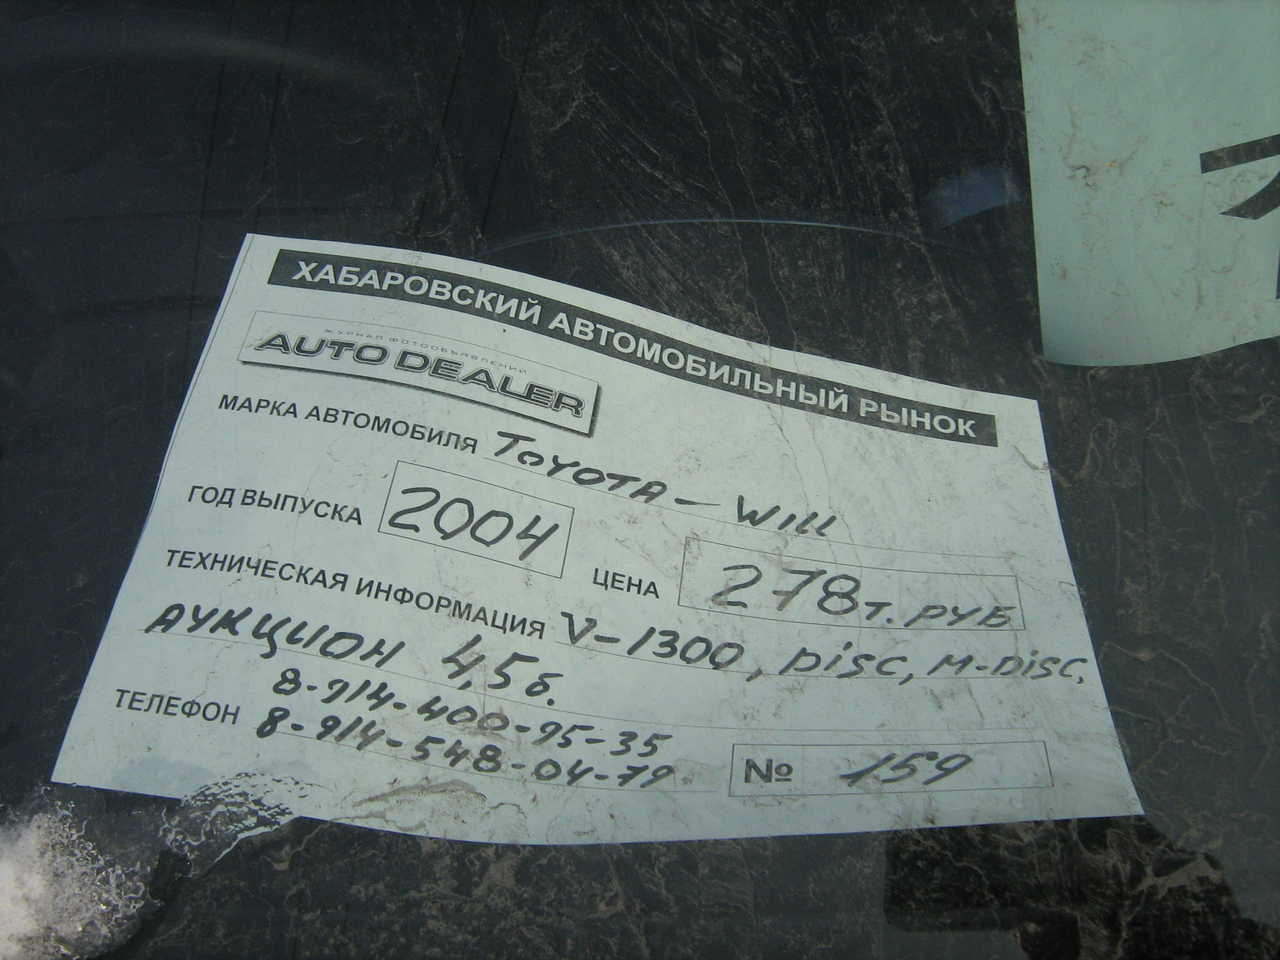 ХАБАРОВСКИЙ АВТОМОБИЛЬНЫЙ РЫНОК
ЖУРНАЛ ФОТООБЪЯВЛЕНИЙ
AUTO DEALER
МАРКА АВТОМОБИЛЯ TOYOTA - Will
ГОД ВЫПУСКА 2004 ЦЕНА 278 т. РУБ
ТЕХНИЧЕСКАЯ ИНФОРМАЦИЯ V-1300, DiSC, M-DiSC,
АУКЦИОН 4,5 б.
8-914-400-95-35
ТЕЛЕФОН 8-914-548-04-79 № 159